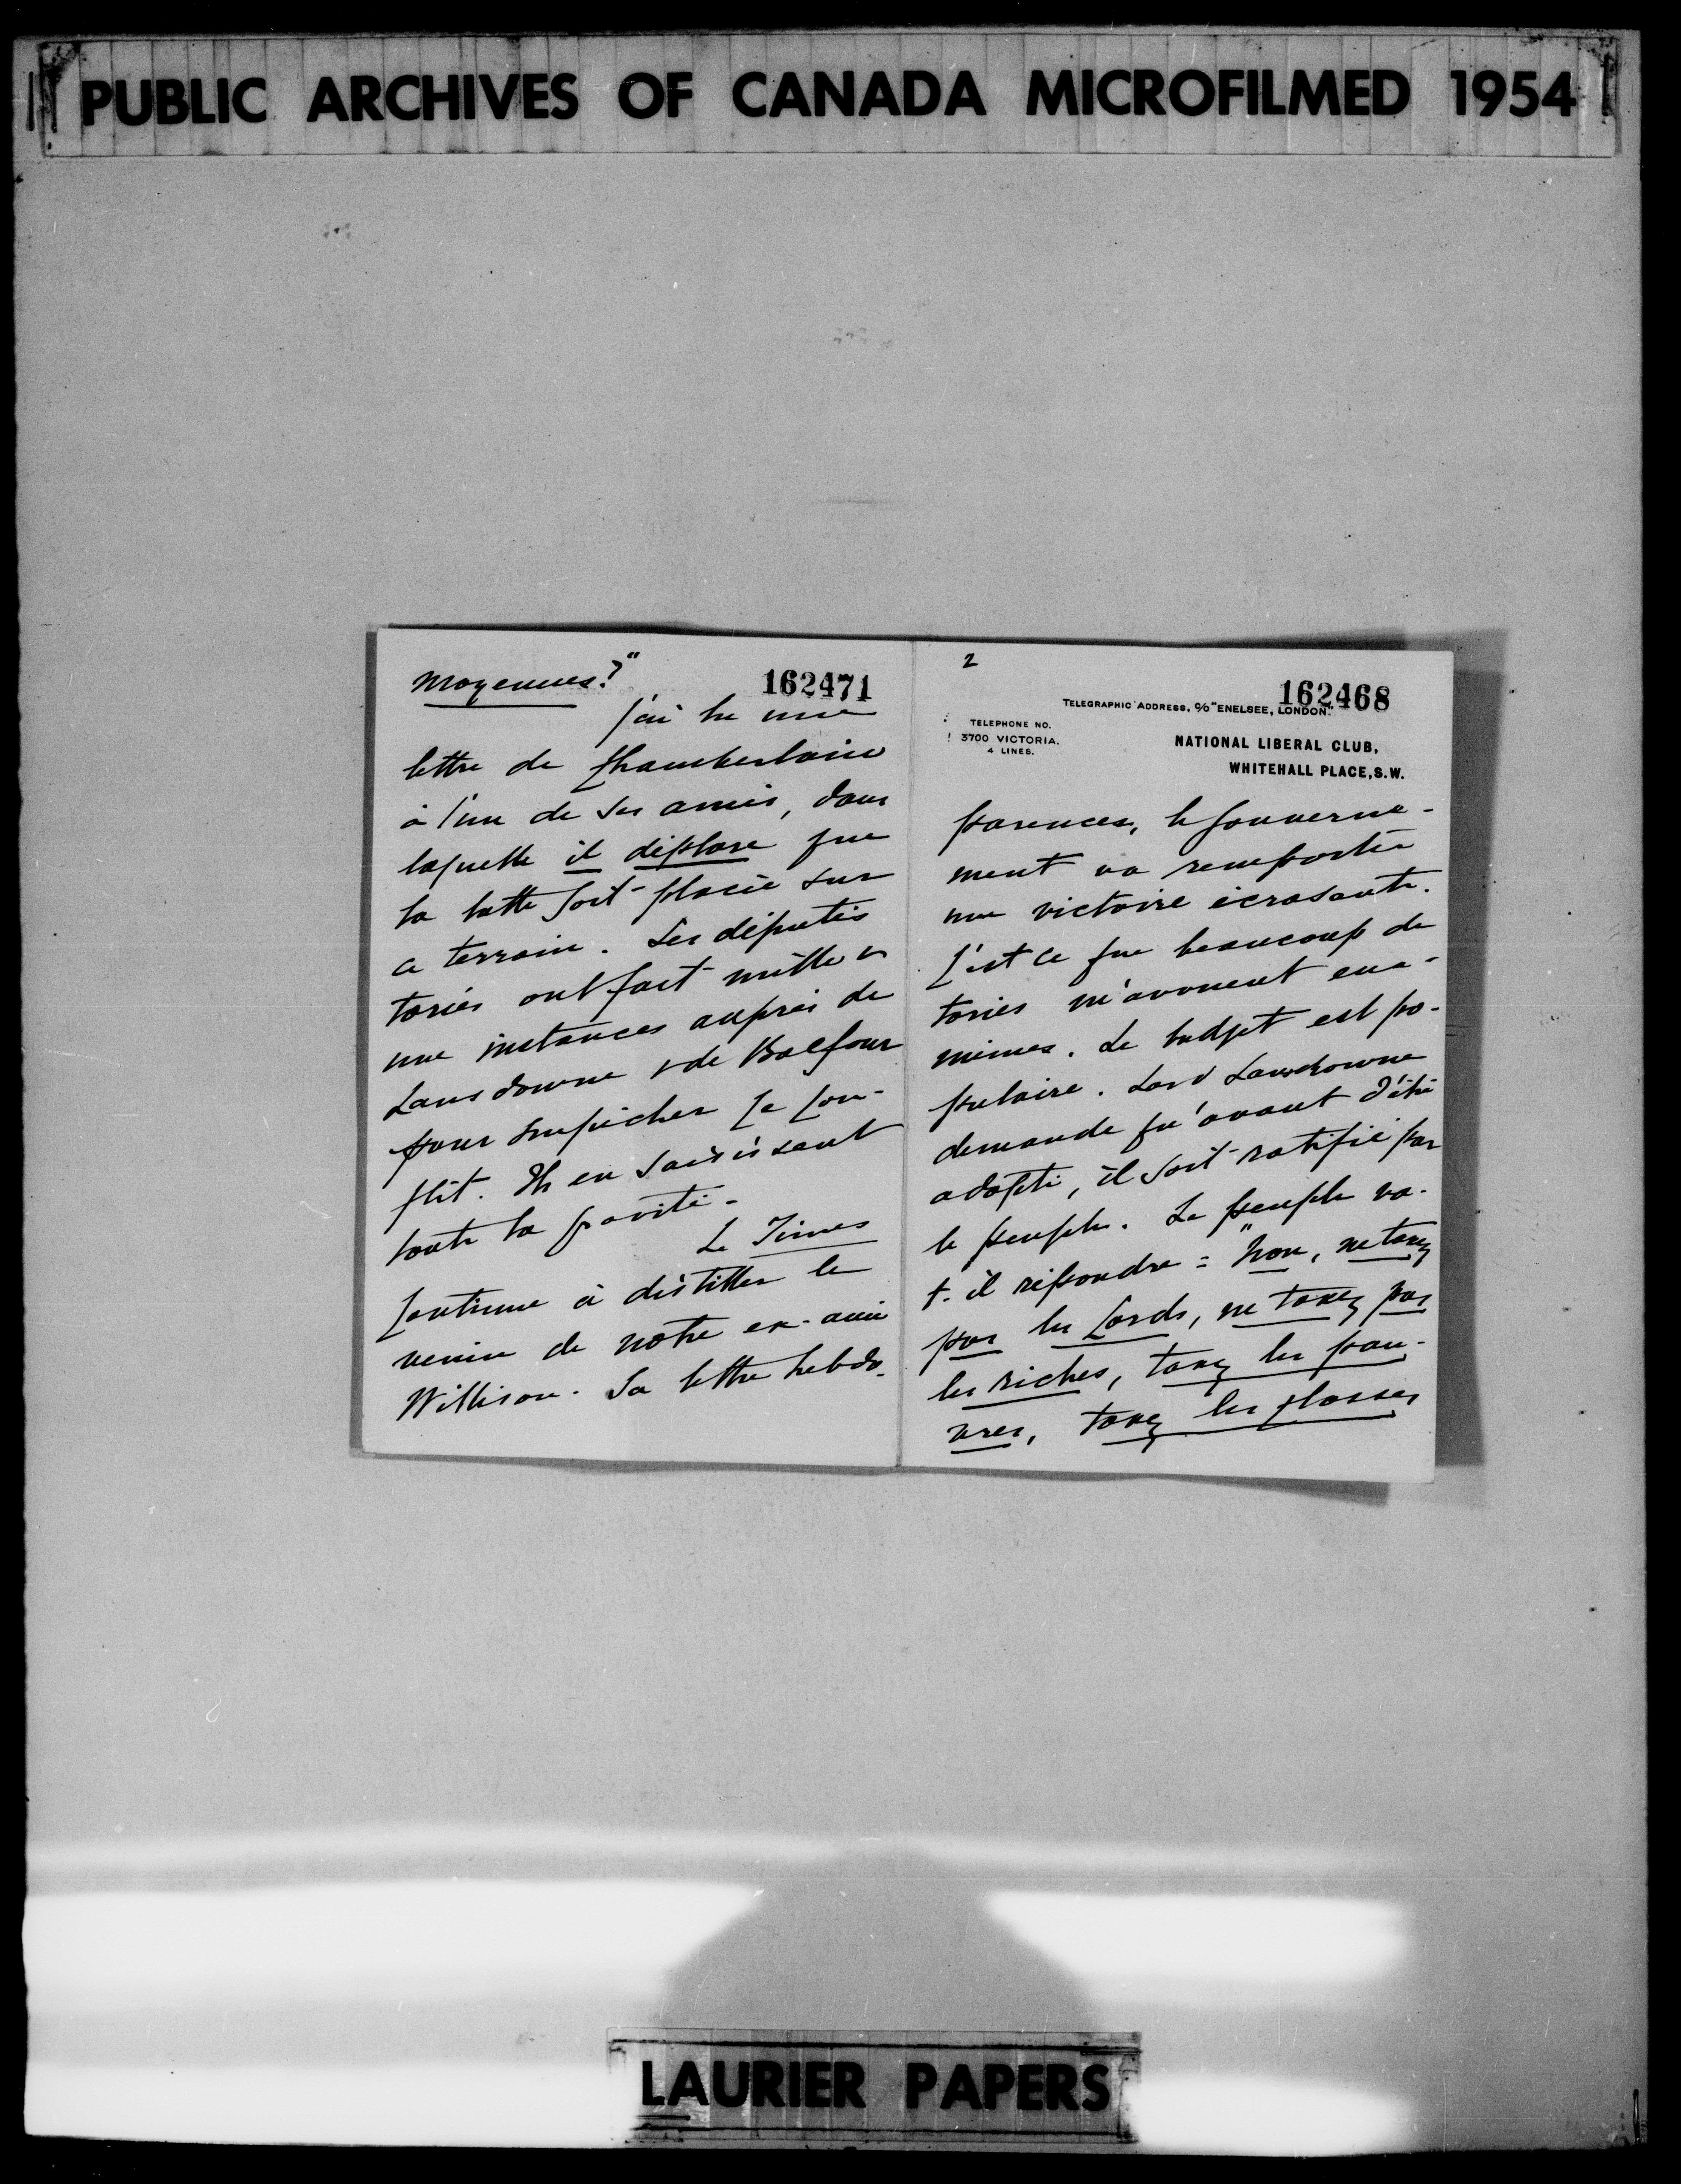 PUBLIC ARCHIVES OF CANADA MICROFILMED 1954
moyennes?"
162471
J'ai lu une
lettre de Chamberlain
à l'un de ses amis, dans
laquelle il déplore que
la lutte soit placée sur
ce terrain. Les députés
tories ont fait mille et
une instances auprès de
Lansdowne & de Balfour
pour empêcher ce con-
flit. Ils en saisissent
toute la gravité.
Le Times
continue à distiller le
venin de notre ex-ami
Willison. Sa lettre hebdo-
2
162468
TELEGRAPHIC ADDRESS, C/O "ENELSEE, LONDON".
TELEPHONE NO.
3700 VICTORIA.
4 LINES.
NATIONAL LIBERAL CLUB,
WHITEHALL PLACE, S.W.
parences, le gouverne-
ment va remporter
une victoire écrasante.
C'est ce que beaucoup de
tories m'avouent eux-
mêmes. Le budget est po-
pulaire. Lord Lansdowne
demande qu'avant d'être
adopté, il soit ratifié par
le peuple. Le peuple va-
t-il répondre = "Non, ne taxez
pas les Lords, ne taxez pas
les riches, taxez les pau-
vres, taxez les classes
LAURIER PAPERS